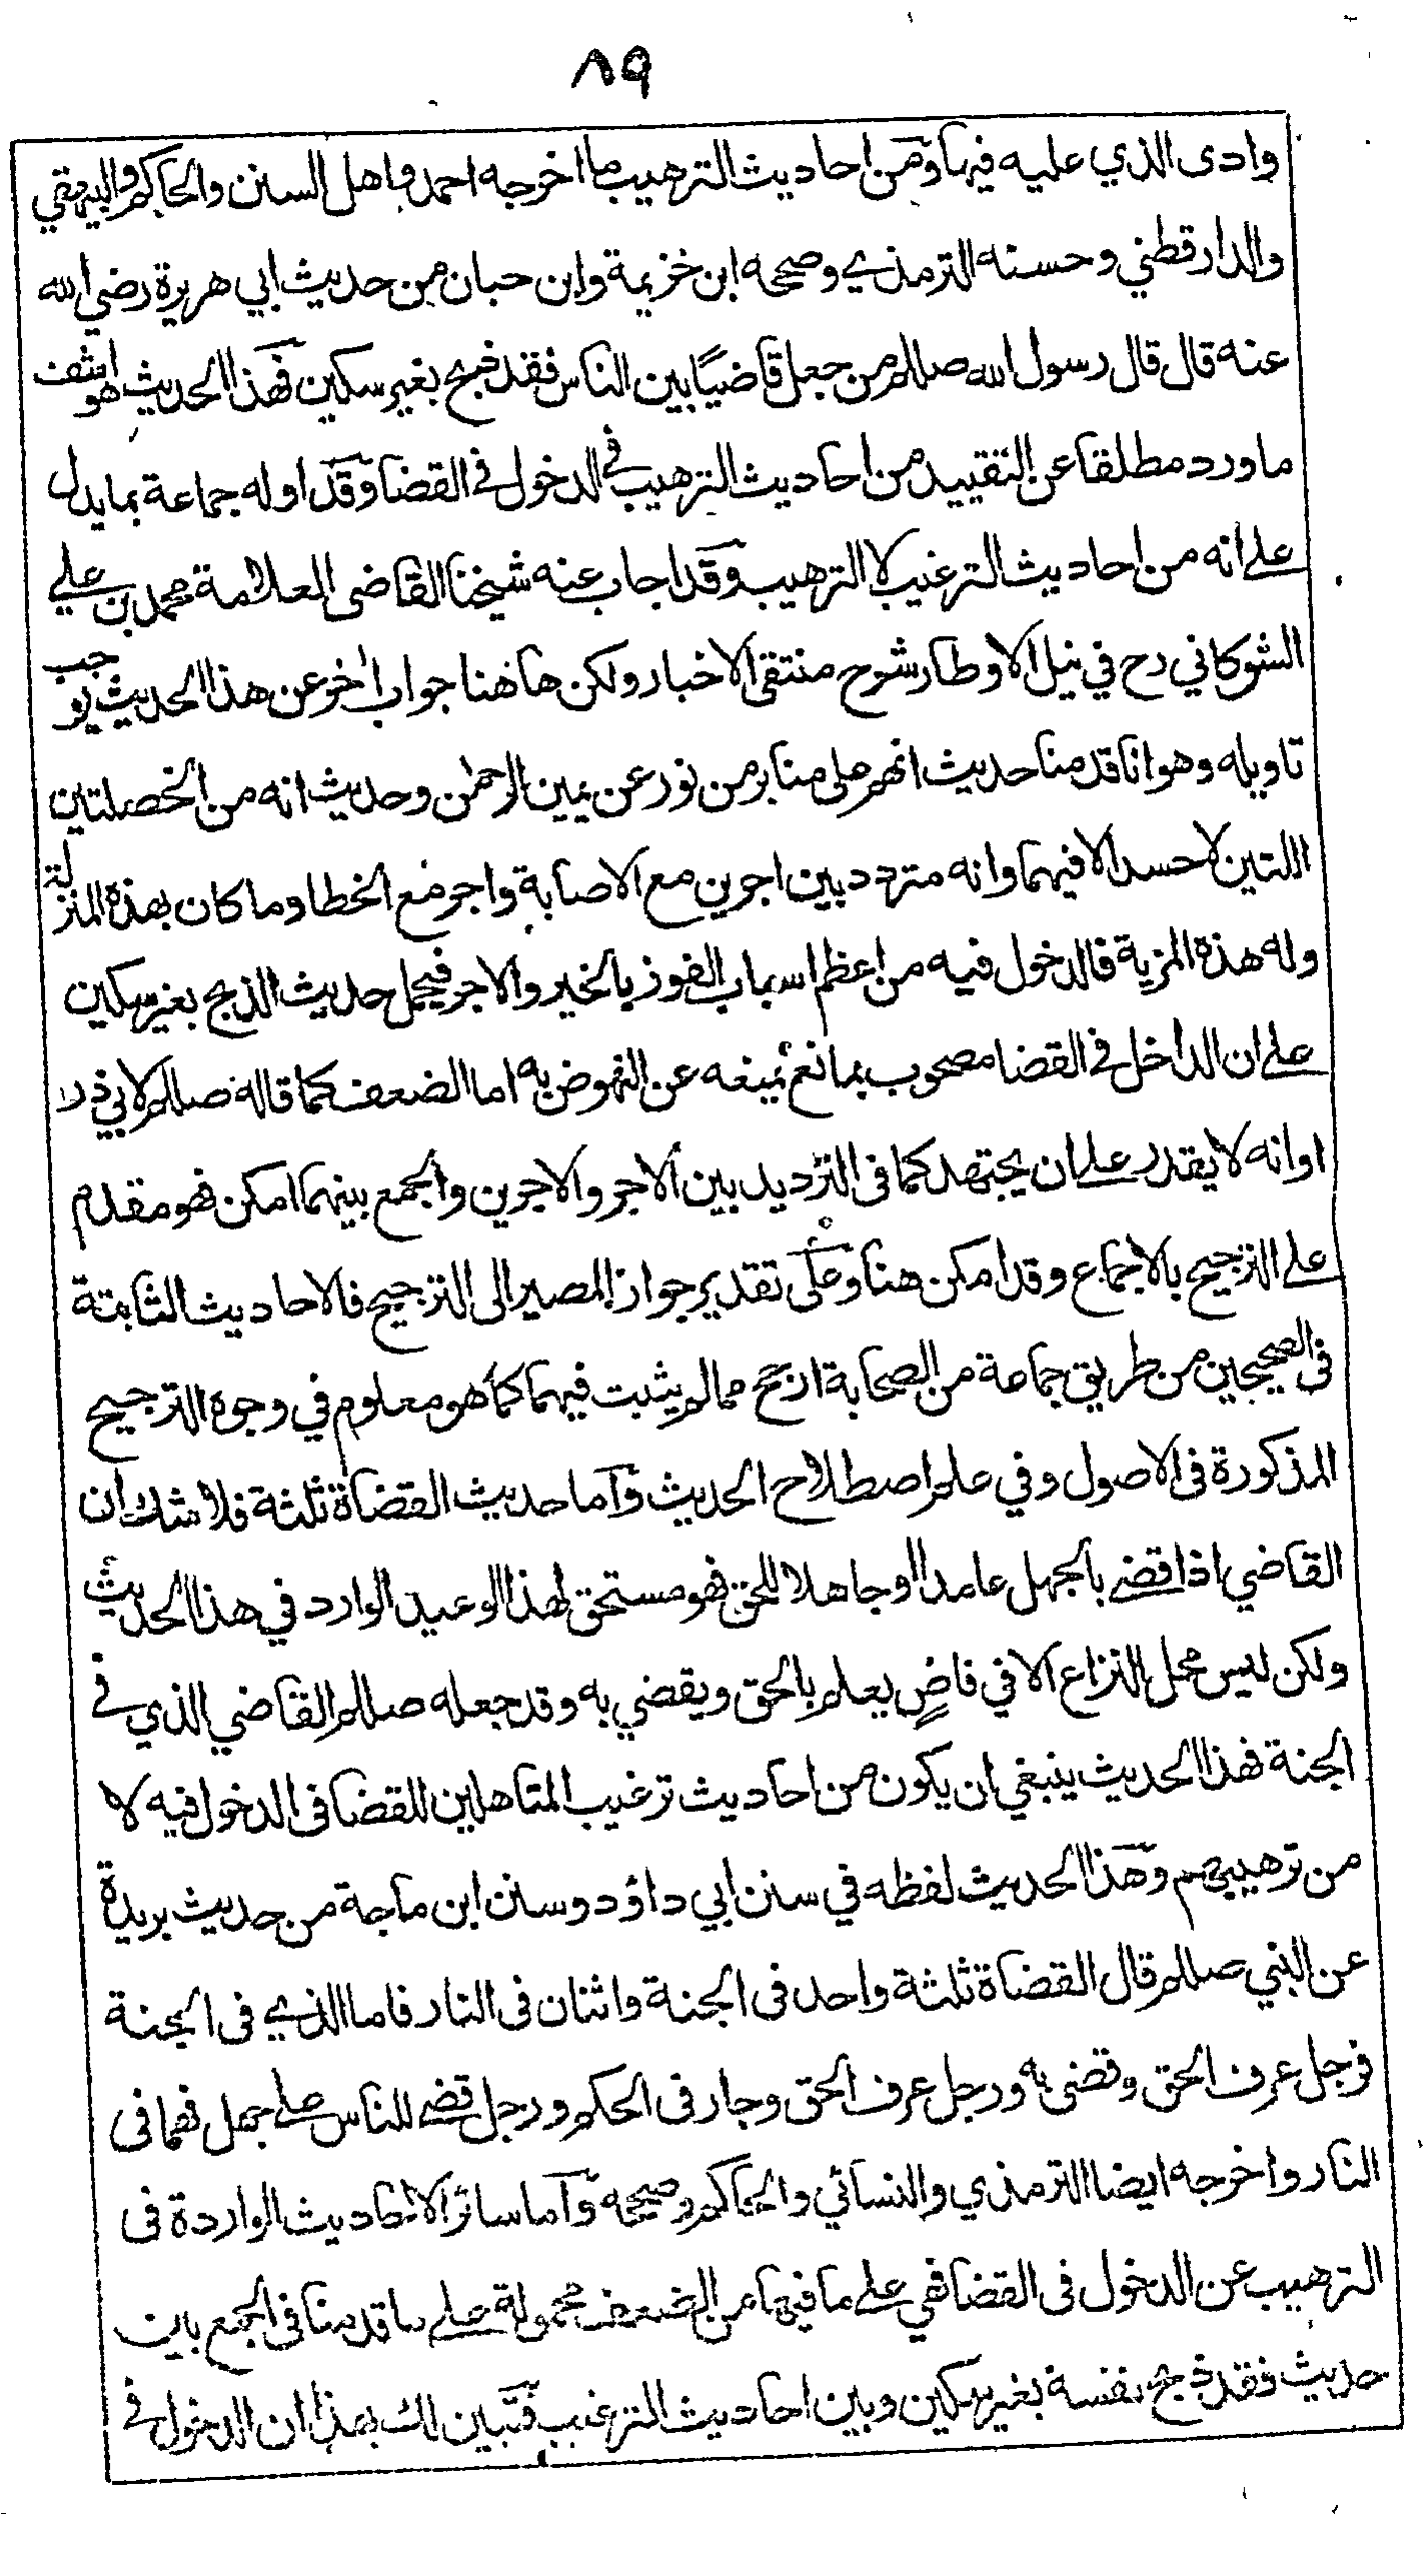 ٨٩
وادى الذي عليه فيها ومن احاديث الترهيب ما اخرجه احمد واهل السنن والحاكم والبيهقي
والدارقطني وحسنه الترمذي وصححه ابن خزيمة وابن حبان من حديث ابي هريرة رضي الله
عنه قال قال رسول الله صللم من جعل قاضيًا بين الناس فقد ذبح بغير سكين فهذا الحديث هو اشف
ما ورد مطلقا عن التقييد من احاديث الترهيب في الدخول في القضا وقد اوله جماعة بما يدل
على انه من احاديث الترغيب لا الترهيب وقد اجاب عنه شيخنا القاضى العلامة محمد بن علي
الشوكاني رح في نيل الاوطار شرح منتقى الاخبار ولكن هاهنا جواب اخر عن هذا الحديث يوجب
تاويله وهو انا قدمنا حديث انهم على منابر من نور عن يمين الرحمن وحديث انه من الخصلتين
اللتين لا حسد الا فيهما وانه متردد بين اجرين مع الاصابة واجر مع الخطا وما كان بهذه المنزلة
وله هذه المزية فالدخول فيه من اعظم اسباب الفوز بالخير والاجر فيحمل حديث الذبح بغير سكين
على ان الداخل في القضا مصحوب بمانع يمنعه عن النهوض به اما الضعف كما قاله صللم لابي ذر
او انه لا يقدر على ان يجتهد كما فى الترديد بين الاجر والاجرين والجمع بينهما امكن فهو مقدم
على الترجيح بالاجماع وقد امكن هنا وعلى تقدير جواز المصير الى الترجيح فالاحاديث الثابتة
فى الصحيحين من طريق جماعة من الصحابة ارجح مما لم يثبت فيهما كما هو معلوم في وجوه الترجيح
المذكورة فى الاصول وفي علم اصطلاح الحديث وآما حديث القضاة ثلثة فلا شك ان
القاضي اذا قضى بالجهل عامدا او جاهلا للحق فهو مستحق لهذا الوعيد الوارد في هذا الحديث
ولكن ليس محل النزاع الا في قاضٍ يعلم بالحق ويقضي به وقد جعله صللم القاضي الذي في
الجنة فهذا الحديث ينبغي ان يكون من احاديث ترغيب المتاهلين للقضا فى الدخول فيه لا
من ترهيبهم وهذا الحديث لفظه في سنن ابي داؤد وسنن ابن ماجة من حديث بريدة
عن النبي صللم قال القضاة ثلثة واحد فى الجنة واثنان فى النار فاما الذي فى الجنة
فرجل عرف الحق وقضى به ورجل عرف الحق وجار فى الحكم ورجل قضى للناس على جهل فهما فى
النار واخرجه ايضا الترمذي والنسائي والحاكم وصححه وآما سائر الاحاديث الواردة فى
الترهيب عن الدخول فى القضا فهي على ما فيها من الضعف محمولة على ما قدمنا فى الجمع بين
حديث فقد ذبح نفسه بغير سكين وبين احاديث الترغيب فتبين لك بهذا ان الدخول في